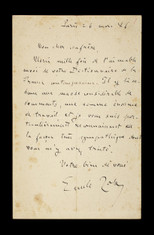 Paris 26 mai 86
Mon cher confrère
Merci mille fois de l'aimable
envoi de votre Dictionnaire de la
France contemporaine. Il y a là
dans une masse considérable de
documents, une somme énorme
de travail, et je vous suis per-
sonnellement reconnaissant de
la façon très sympathique dont
vous m'y avez traité.
Votre bien dévoué
Emile Zola